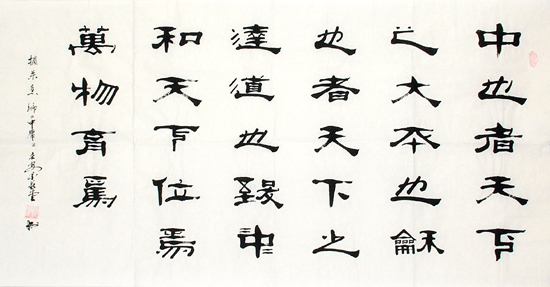 中也者天下
之大本也龢
也者天下之
達道也致中
和天下位焉
萬物育焉